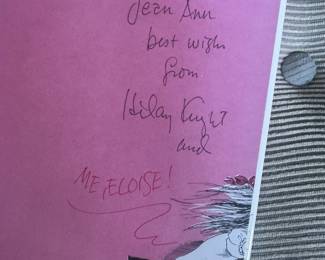 Jean Ann
best wishes
from
Hilary Knight
and
ME, ELOISE!